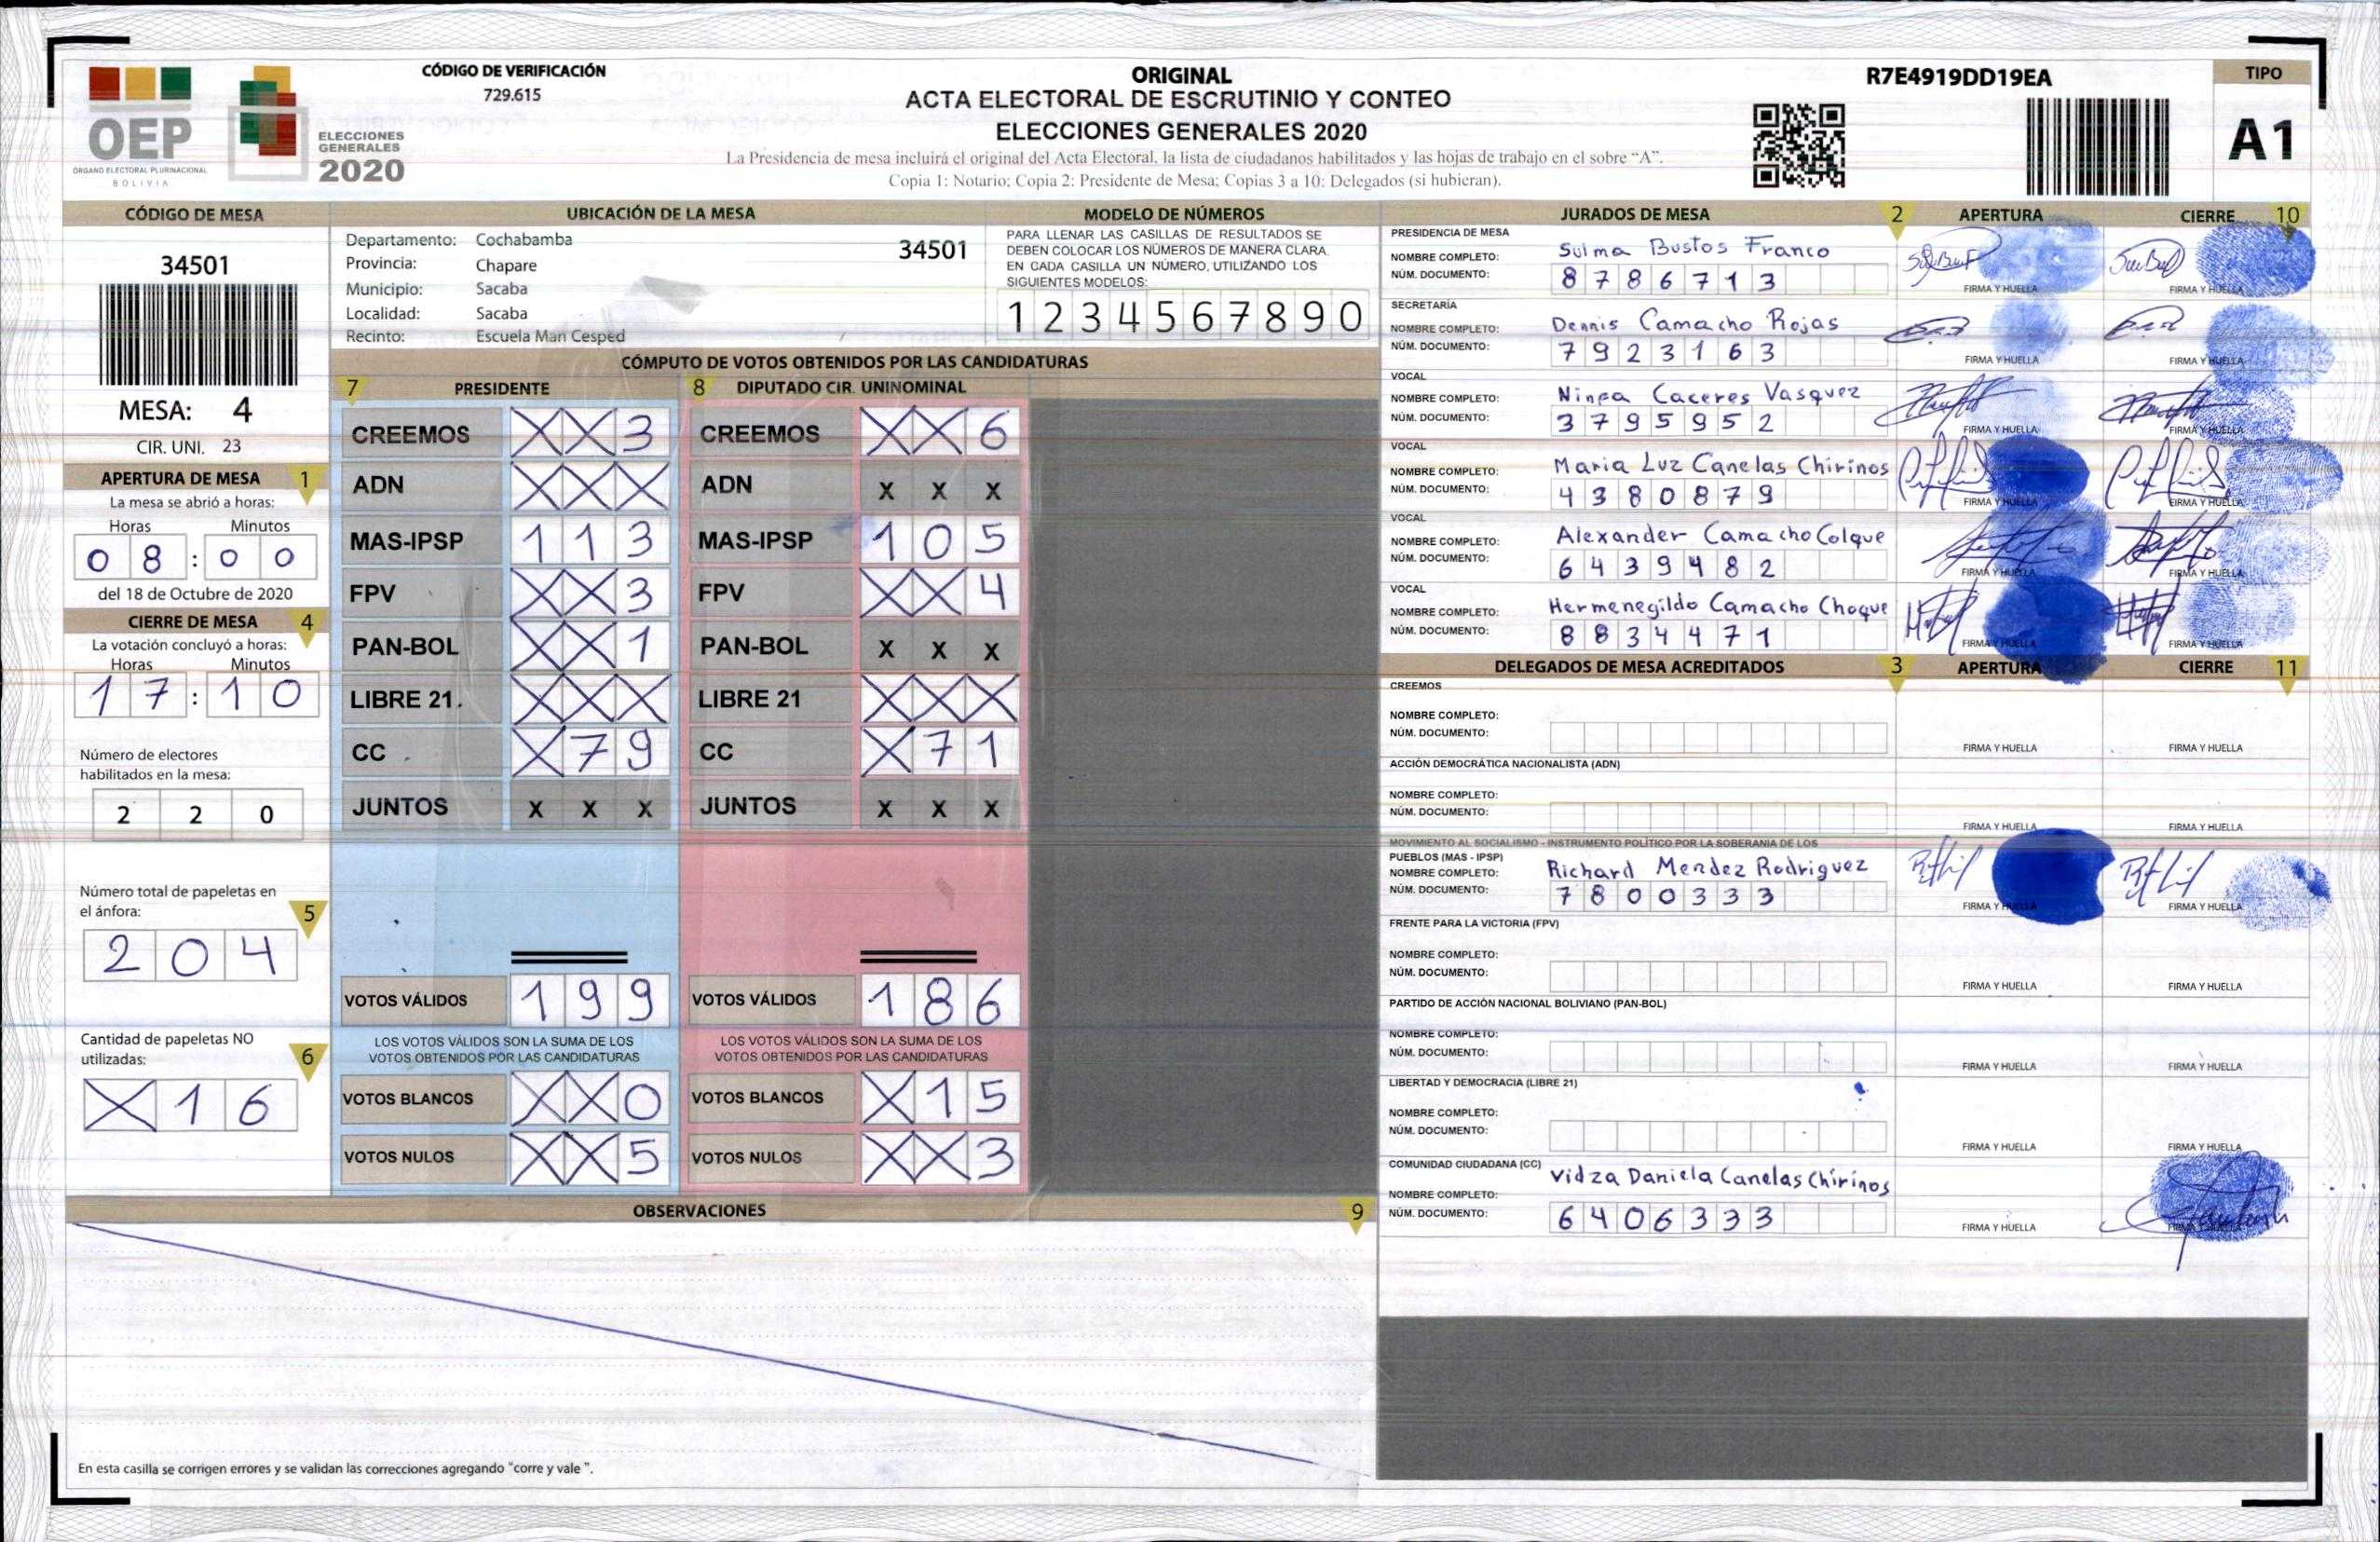 OEP
ÓRGANO ELECTORAL PLURINACIONAL
BOLIVIA
ELECCIONES
GENERALES
2020
CÓDIGO DE VERIFICACIÓN
729.615
ORIGINAL
ACTA ELECTORAL DE ESCRUTINIO Y CONTEO
ELECCIONES GENERALES 2020
La Presidencia de mesa incluirá el original del Acta Electoral, la lista de ciudadanos habilitados y las hojas de trabajo en el sobre “A”.
Copia 1: Notario; Copia 2: Presidente de Mesa; Copias 3 a 10: Delegados (si hubieran).
R7E4919DD19EA
TIPO
A1
CÓDIGO DE MESA
34501
MESA: 4
CIR. UNI. 23
APERTURA DE MESA 1
La mesa se abrió a horas:
Horas Minutos
0 8 : 0 0
del 18 de Octubre de 2020
CIERRE DE MESA 4
La votación concluyó a horas:
Horas Minutos
1 7 : 1 0
Número de electores
habilitados en la mesa:
2 2 0
Número total de papeletas en
el ánfora: 5
2 0 4
Cantidad de papeletas NO
utilizadas: 6
X 1 6
UBICACIÓN DE LA MESA
Departamento: Cochabamba
34501
Provincia: Chapare
Municipio: Sacaba
Localidad: Sacaba
Recinto: Escuela Man Cesped
MODELO DE NÚMEROS
PARA LLENAR LAS CASILLAS DE RESULTADOS SE
DEBEN COLOCAR LOS NÚMEROS DE MANERA CLARA.
EN CADA CASILLA UN NÚMERO, UTILIZANDO LOS
SIGUIENTES MODELOS:
1 2 3 4 5 6 7 8 9 0
CÓMPUTO DE VOTOS OBTENIDOS POR LAS CANDIDATURAS
7 PRESIDENTE
CREEMOS X X 3
ADN X X X
MAS-IPSP 1 1 3
FPV X X 3
PAN-BOL X X 1
LIBRE 21 X X X
CC X 7 9
JUNTOS X X X
VOTOS VÁLIDOS 1 9 9
LOS VOTOS VÁLIDOS SON LA SUMA DE LOS
VOTOS OBTENIDOS POR LAS CANDIDATURAS
VOTOS BLANCOS X X 0
VOTOS NULOS X X 5
8 DIPUTADO CIR. UNINOMINAL
CREEMOS X X 6
ADN X X X
MAS-IPSP 1 0 5
FPV X X 4
PAN-BOL X X X
LIBRE 21 X X X
CC X 7 1
JUNTOS X X X
VOTOS VÁLIDOS 1 8 6
LOS VOTOS VÁLIDOS SON LA SUMA DE LOS
VOTOS OBTENIDOS POR LAS CANDIDATURAS
VOTOS BLANCOS X 1 5
VOTOS NULOS X X 3
OBSERVACIONES 9
En esta casilla se corrigen errores y se validan las correcciones agregando “corre y vale ”.
JURADOS DE MESA 2 APERTURA CIERRE 10
PRESIDENCIA DE MESA
NOMBRE COMPLETO: Sulma Bustos Franco
NÚM. DOCUMENTO: 8 7 8 6 7 1 3
FIRMA Y HUELLA FIRMA Y HUELLA
SECRETARÍA
NOMBRE COMPLETO: Dennis Camacho Rojas
NÚM. DOCUMENTO: 7 9 2 3 1 6 3
FIRMA Y HUELLA FIRMA Y HUELLA
VOCAL
NOMBRE COMPLETO: Ninfa Caceres Vasquez
NÚM. DOCUMENTO: 3 7 9 5 9 5 2
FIRMA Y HUELLA FIRMA Y HUELLA
VOCAL
NOMBRE COMPLETO: Maria Luz Canelas Chirinos
NÚM. DOCUMENTO: 4 3 8 0 8 7 9
FIRMA Y HUELLA FIRMA Y HUELLA
VOCAL
NOMBRE COMPLETO: Alexander Camacho Colque
NÚM. DOCUMENTO: 6 4 3 9 4 8 2
FIRMA Y HUELLA FIRMA Y HUELLA
VOCAL
NOMBRE COMPLETO: Hermenegildo Camacho Choque
NÚM. DOCUMENTO: 8 8 3 4 4 7 1
FIRMA Y HUELLA FIRMA Y HUELLA
DELEGADOS DE MESA ACREDITADOS 3 APERTURA CIERRE 11
CREEMOS
NOMBRE COMPLETO:
NÚM. DOCUMENTO:
FIRMA Y HUELLA FIRMA Y HUELLA
ACCIÓN DEMOCRÁTICA NACIONALISTA (ADN)
NOMBRE COMPLETO:
NÚM. DOCUMENTO:
FIRMA Y HUELLA FIRMA Y HUELLA
MOVIMIENTO AL SOCIALISMO - INSTRUMENTO POLÍTICO POR LA SOBERANIA DE LOS
PUEBLOS (MAS - IPSP)
NOMBRE COMPLETO: Richard Mendez Rodriguez
NÚM. DOCUMENTO: 7 8 0 0 3 3 3
FIRMA Y HUELLA FIRMA Y HUELLA
FRENTE PARA LA VICTORIA (FPV)
NOMBRE COMPLETO:
NÚM. DOCUMENTO:
FIRMA Y HUELLA FIRMA Y HUELLA
PARTIDO DE ACCIÓN NACIONAL BOLIVIANO (PAN-BOL)
NOMBRE COMPLETO:
NÚM. DOCUMENTO:
FIRMA Y HUELLA FIRMA Y HUELLA
LIBERTAD Y DEMOCRACIA (LIBRE 21)
NOMBRE COMPLETO:
NÚM. DOCUMENTO:
FIRMA Y HUELLA FIRMA Y HUELLA
COMUNIDAD CIUDADANA (CC)
NOMBRE COMPLETO: Vidza Daniela Canelas Chirinos
NÚM. DOCUMENTO: 6 4 0 6 3 3 3
FIRMA Y HUELLA FIRMA Y HUELLA